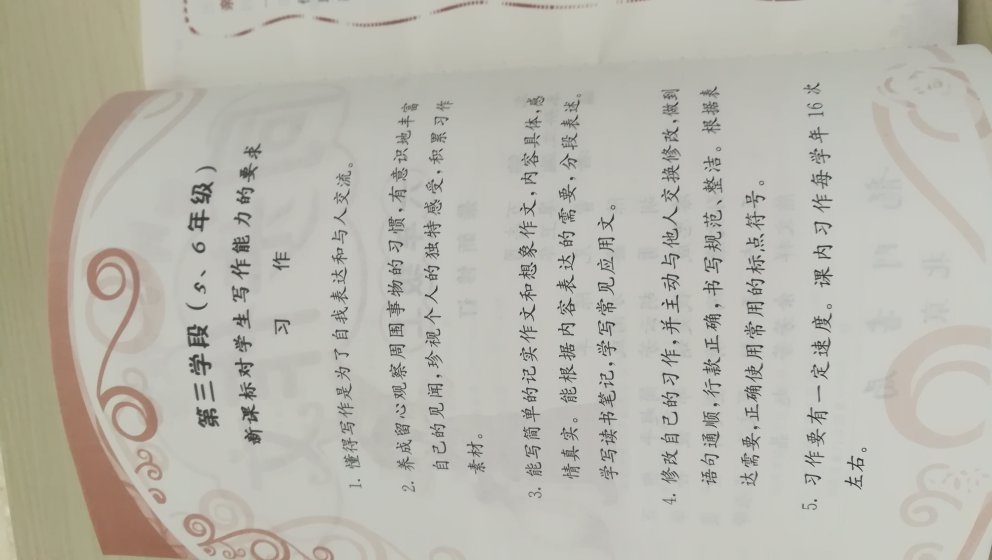 第三学段(5、6年级)
新课标对学生写作能力的要求
习 作
1. 懂得写作是为了自我表达和与人交流。
2. 养成留心观察周围事物的习惯,有意识地丰富
自己的见闻,珍视个人的独特感受,积累习作
素材。
3. 能写简单的记实作文和想象作文,内容具体,感
情真实。能根据内容表达的需要,分段表述。
学写读书笔记,学写常见应用文。
4. 修改自己的习作,并主动与他人交换修改,做到
语句通顺,行款正确,书写规范、整洁。根据表
达需要,正确使用常用的标点符号。
5. 习作要有一定速度。课内习作每学年16次
左右。